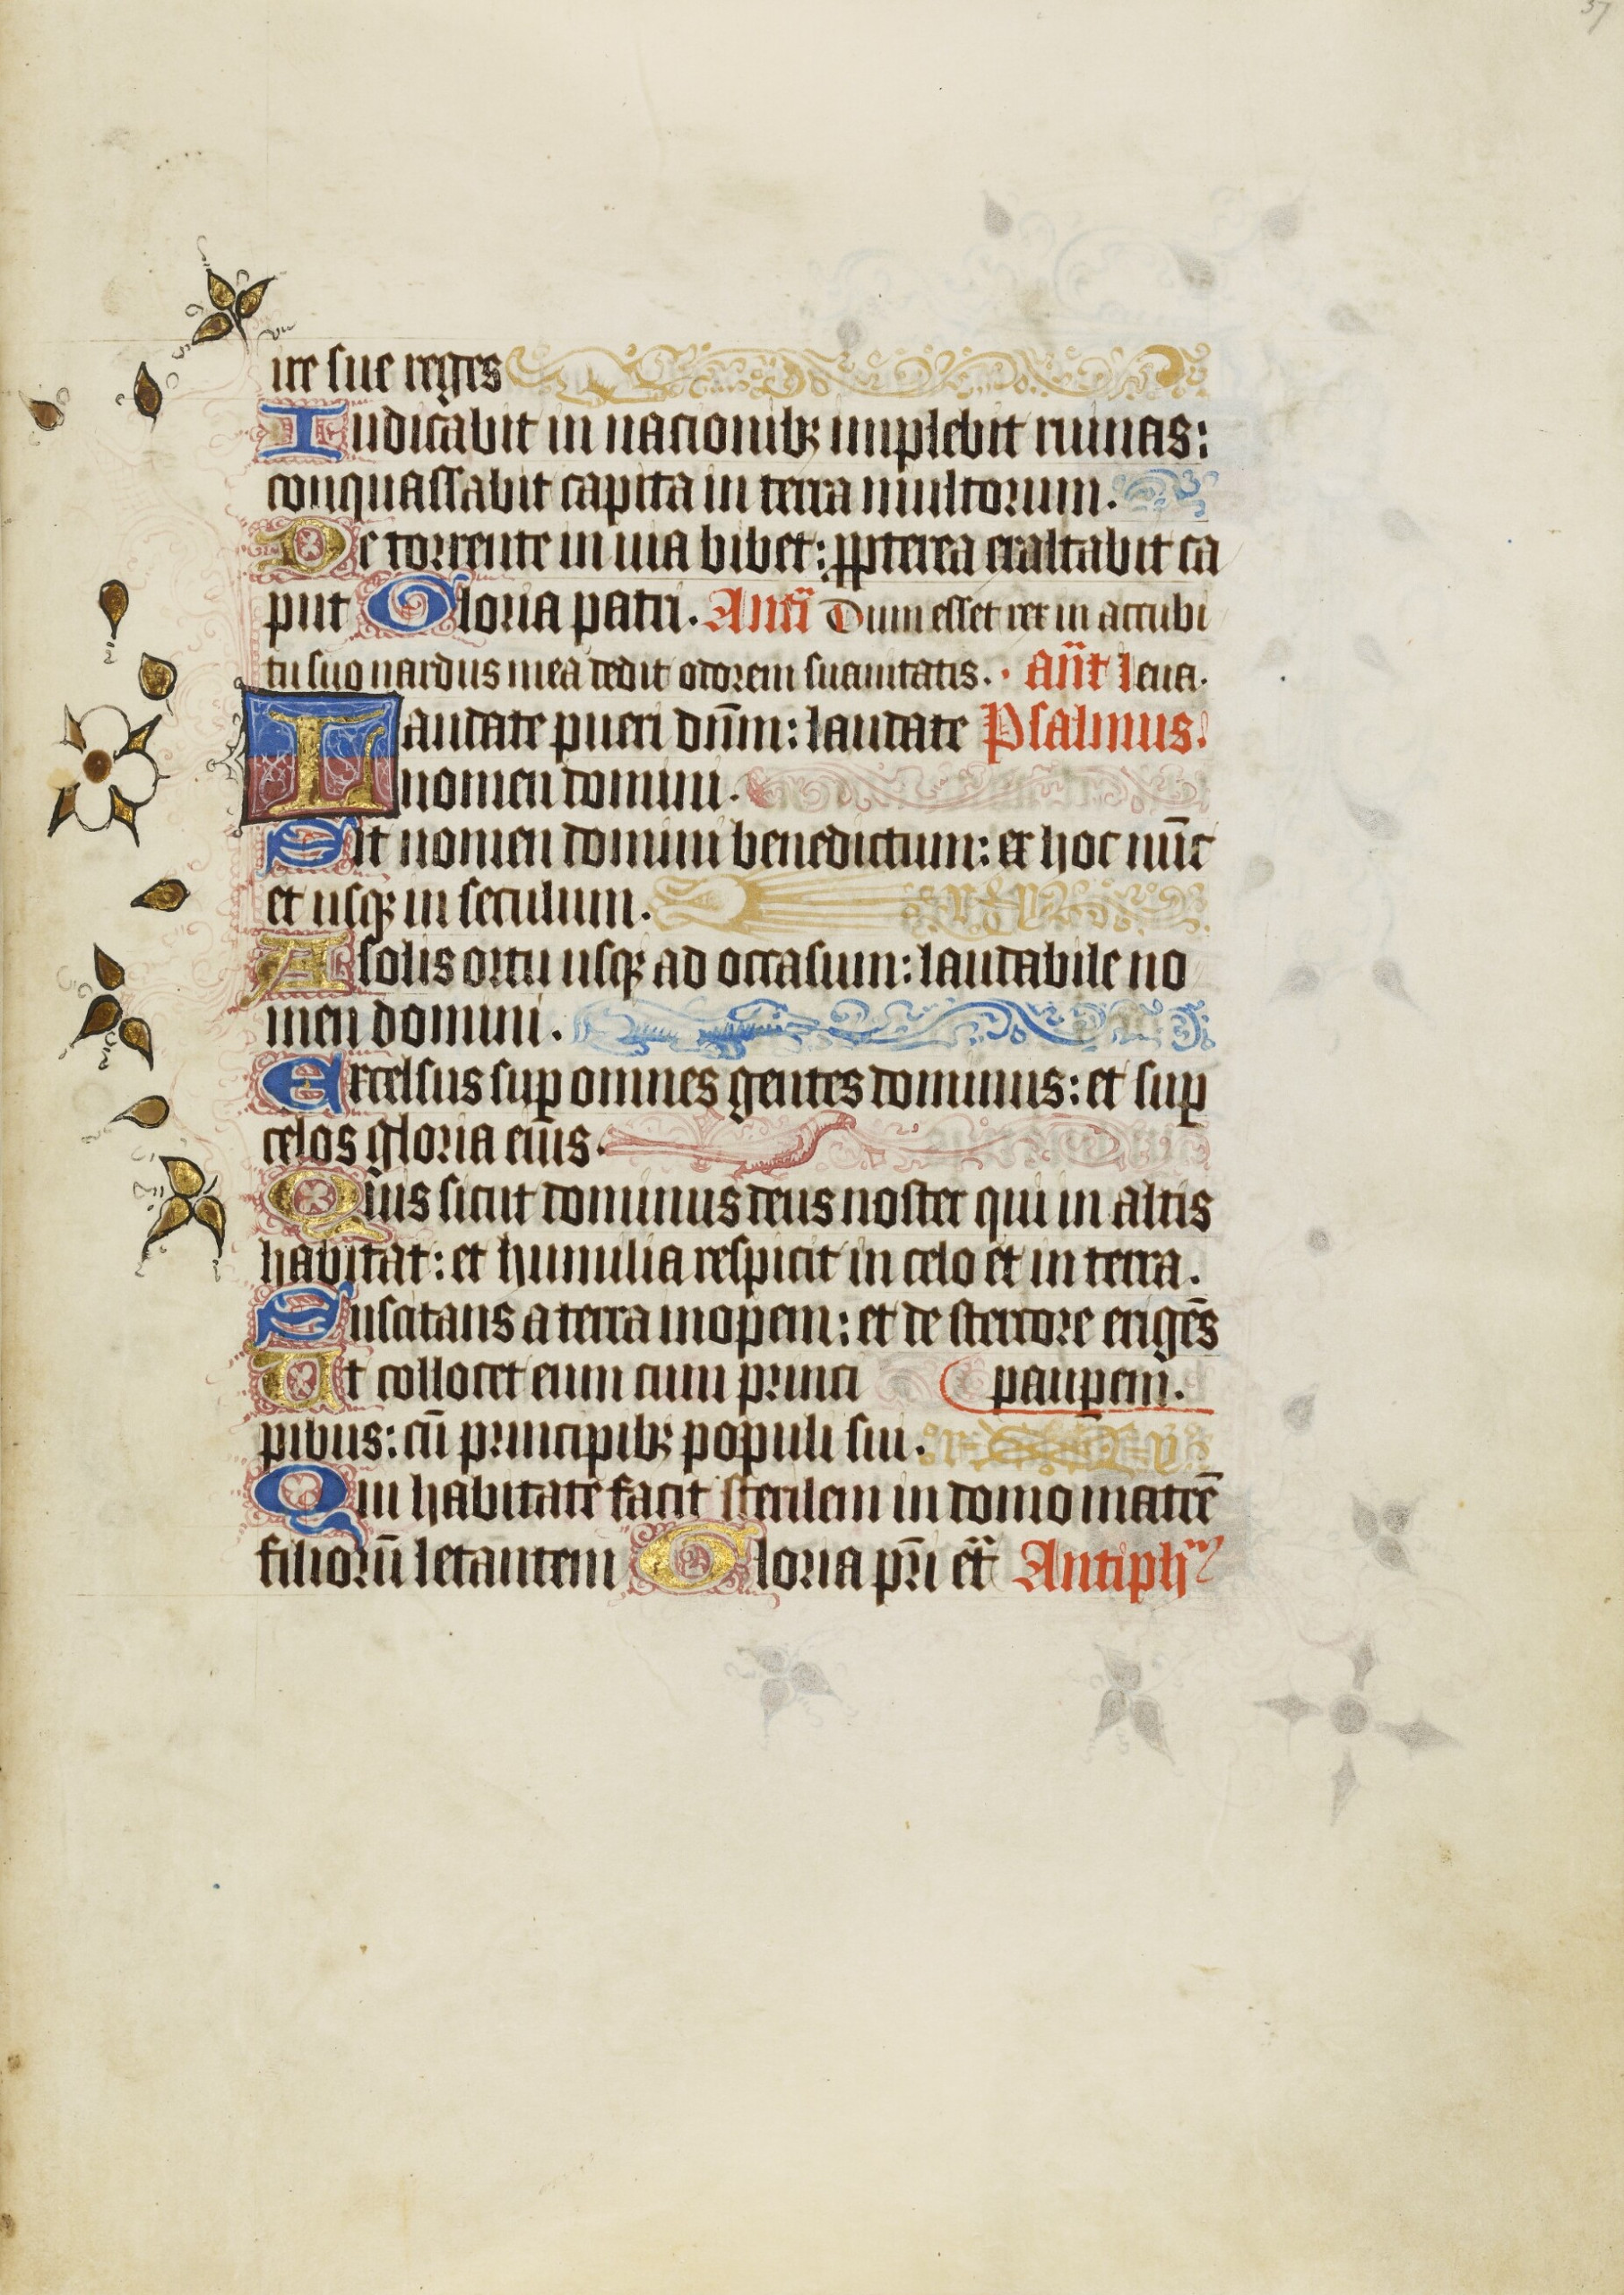 37
ire sue reges
Iudicabit in nacionibꝫ implebit ruinas:
conquassabit capita in terra multorum.
De torrente in uia bibet: ꝓpterea exaltabit ca
put Gloria patri. Antī Dum esset rex in accubi
tu suo nardus mea dedit odorem suauitatis. · añt leua.
Laudate pueri dn̄m: laudate Psalmus.
nomen domini.
Sit nomen domini benedictum: ex hoc nūc
et usqꝫ in seculum.
A solis ortu usqꝫ ad occasum: laudabile no
men domini.
Excelsus suꝑ omnes gentes dominus: et suꝑ
celos gloria eius.
Quis sicut dominus deus noster qui in altis
habitat: et humilia respicit in celo et in terra.
Suscitans a terra inopem: et de stercore erigēs
Ut collocet eum cum princi pauꝑem.
pibus: cū principibꝫ populi sui.
Qui habitare facit sterilem in domo matrē
filiorū letantem Gloria pr̄i et̄ Antiph